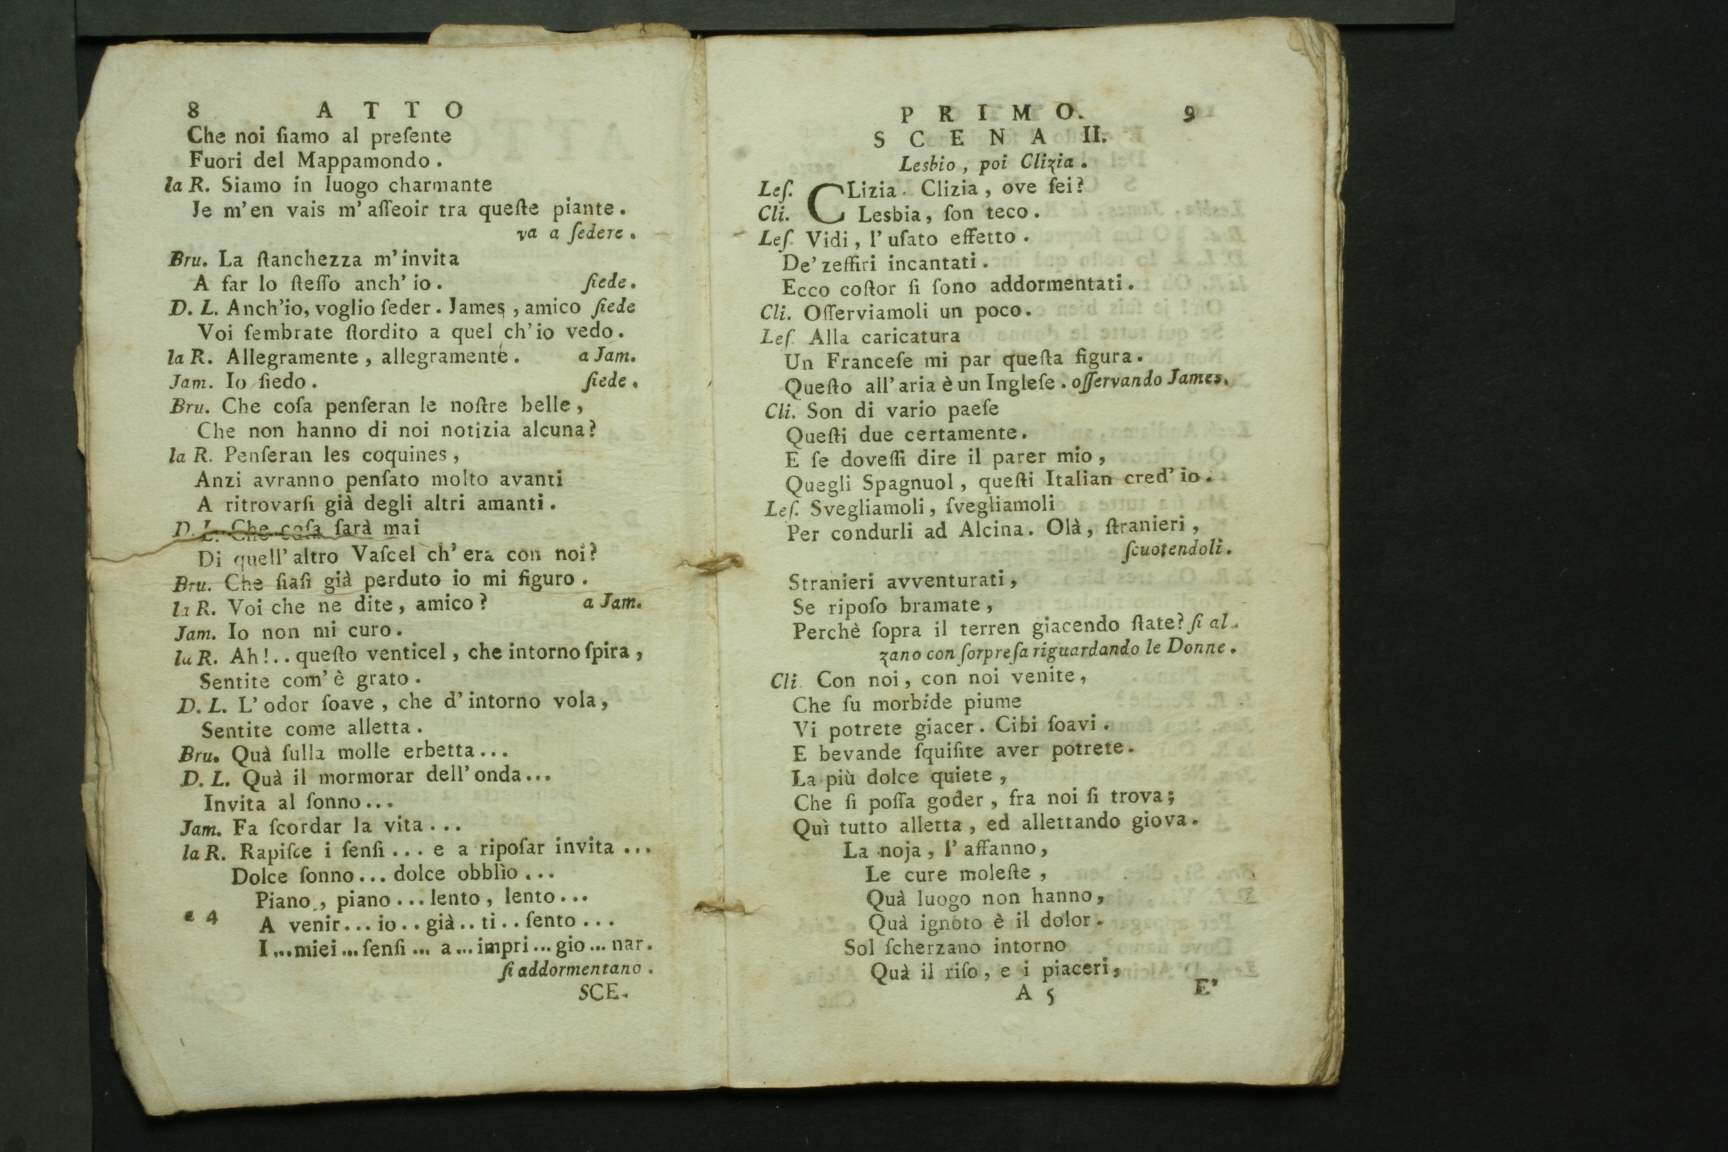 8 ATTO
Che noi ſiamo al preſente
Fuori del Mappamondo.
la R. Siamo in luogo charmante
Je m'en vais m'aſſeoir tra queſte piante.
va a ſedere.
Bru. La ſtanchezza m'invita
A far lo ſteſſo anch' io. ſiede.
D. L. Anch'io, voglio ſeder. James, amico ſiede
Voi ſembrate ſtordito a quel ch'io vedo.
la R. Allegramente, allegramente. a Jam.
Jam. Io ſiedo. ſiede.
Bru. Che coſa penſeran le noſtre belle,
Che non hanno di noi notizia alcuna?
la R. Penſeran les coquines,
Anzi avranno penſato molto avanti
A ritrovarſi già degli altri amanti.
D. L. Che coſa ſarà mai
Di quell'altro Vaſcel ch'era con noi?
Bru. Che ſiaſi già perduto io mi figuro.
la R. Voi che ne dite, amico? a Jam.
Jam. Io non mi curo.
la R. Ah!.. queſto venticel, che intorno ſpira,
Sentite com'è grato.
D. L. L'odor ſoave, che d'intorno vola,
Sentite come alletta.
Bru. Quà ſulla molle erbetta...
D. L. Quà il mormorar dell'onda...
Invita al ſonno...
Jam. Fa ſcordar la vita...
la R. Rapiſce i ſenſi... e a ripoſar invita...
Dolce ſonno... dolce obblìo...
Piano, piano... lento, lento...
a 4 A venir... io.. già.. ti.. ſento...
I... miei... ſenſi... a... impri... gio... nar.
ſi addormentano.
SCE.
PRIMO. 9
SCENA II.
Lesbio, poi Clizia.
Leſ. CLizia. Clizia, ove ſei?
Cli. Lesbia, ſon teco.
Leſ. Vidi, l'uſato effetto.
De' zeffiri incantati.
Ecco coſtor ſi ſono addormentati.
Cli. Oſſerviamoli un poco.
Leſ. Alla caricatura
Un Franceſe mi par queſta figura.
Queſto all'aria è un Ingleſe. oſſervando James.
Cli. Son di vario paeſe
Queſti due certamente.
E ſe doveſſi dire il parer mio,
Quegli Spagnuol, queſti Italian cred'io.
Leſ. Svegliamoli, ſvegliamoli
Per condurli ad Alcina. Olà, ſtranieri,
ſcuotendoli.
Stranieri avventurati,
Se ripoſo bramate,
Perchè ſopra il terren giacendo ſtate? ſi al-
zano con ſorpreſa riguardando le Donne.
Cli. Con noi, con noi venite,
Che ſu morbide piume
Vi potrete giacer. Cibi ſoavi.
E bevande ſquiſite aver potrete.
La più dolce quiete,
Che ſi poſſa goder, fra noi ſi trova;
Quì tutto alletta, ed allettando giova.
La noja, l'affanno,
Le cure moleſte,
Quà luogo non hanno,
Quà ignoto è il dolor.
Sol ſcherzano intorno
Quà il riſo, e i piaceri,
A 5 E'